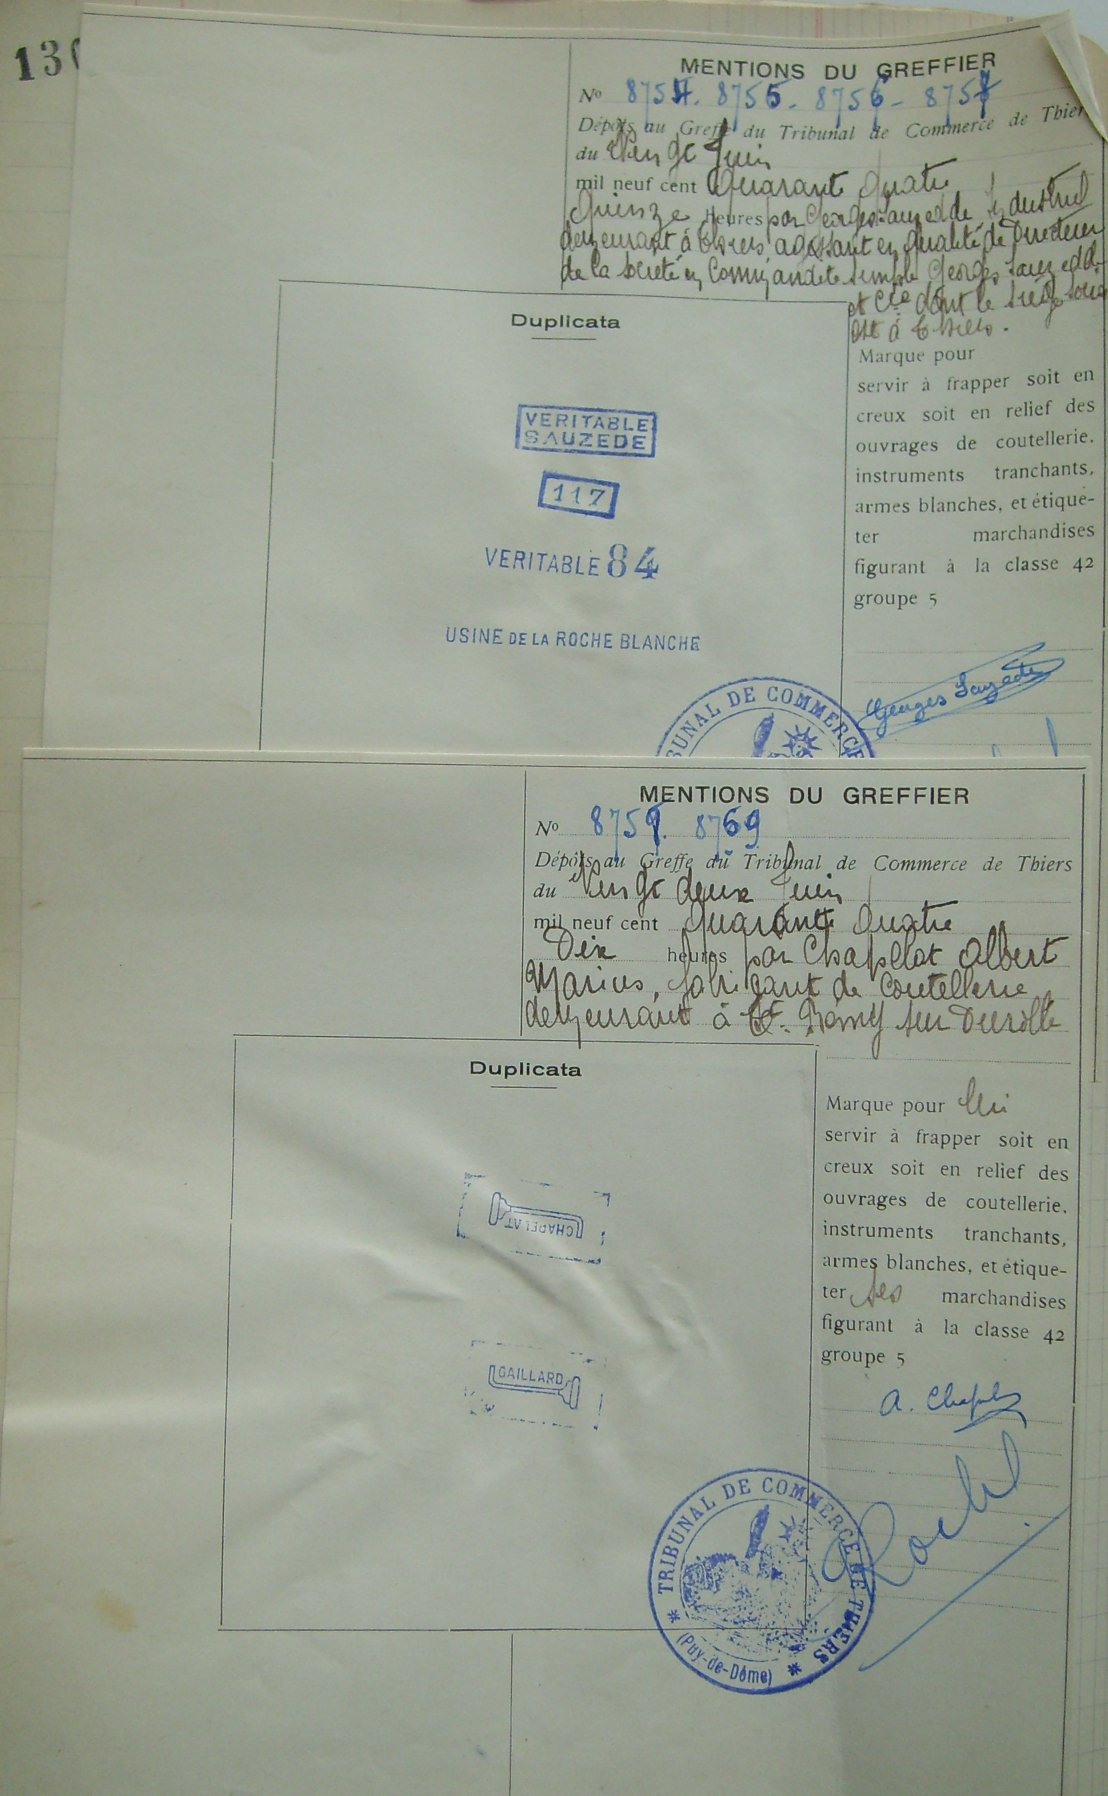 130
MENTIONS DU GREFFIER
No 8754. 8755 - 8756 - 8757
Dépôts au Greffe du Tribunal de Commerce de Thier
du Vingt Juin
mil neuf cent quarante quatre
quinze heures par Georges Sauzedde Industriel
demeurant à Thiers, agissant en qualité de Directeur
de la Société en Commandite simple Georges Sauzedde
et Cie dont le siège social
est à Thiers.
Duplicata
Marque pour
servir à frapper soit en
creux soit en relief des
ouvrages de coutellerie,
instruments tranchants,
armes blanches, et étique-
ter marchandises
figurant à la classe 42
groupe 5
VERITABLE
SAUZEDE
117
VERITABLE 84
USINE DE LA ROCHE BLANCHE
Georges Sauzedde
TRIBUNAL DE COMMERCE
MENTIONS DU GREFFIER
No 8759. 8769
Dépôts au Greffe du Tribunal de Commerce de Thiers
du Vingt deux Juin
mil neuf cent quarante quatre
Dix heures par Chapelat Albert
Marius, fabricant de coutellerie
demeurant à St. Remy sur Durolle
Duplicata
Marque pour lui
servir à frapper soit en
creux soit en relief des
ouvrages de coutellerie,
instruments tranchants,
armes blanches, et étique-
ter ses marchandises
figurant à la classe 42
groupe 5
CHAPELAT
GAILLARD
A. Chapelat
TRIBUNAL DE COMMERCE DE THIERS
(Puy-de-Dôme)